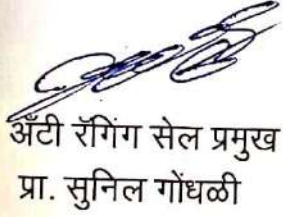 अँटी रॅगिंग सेल प्रमुख
प्रा. सुनिल गोंधळी